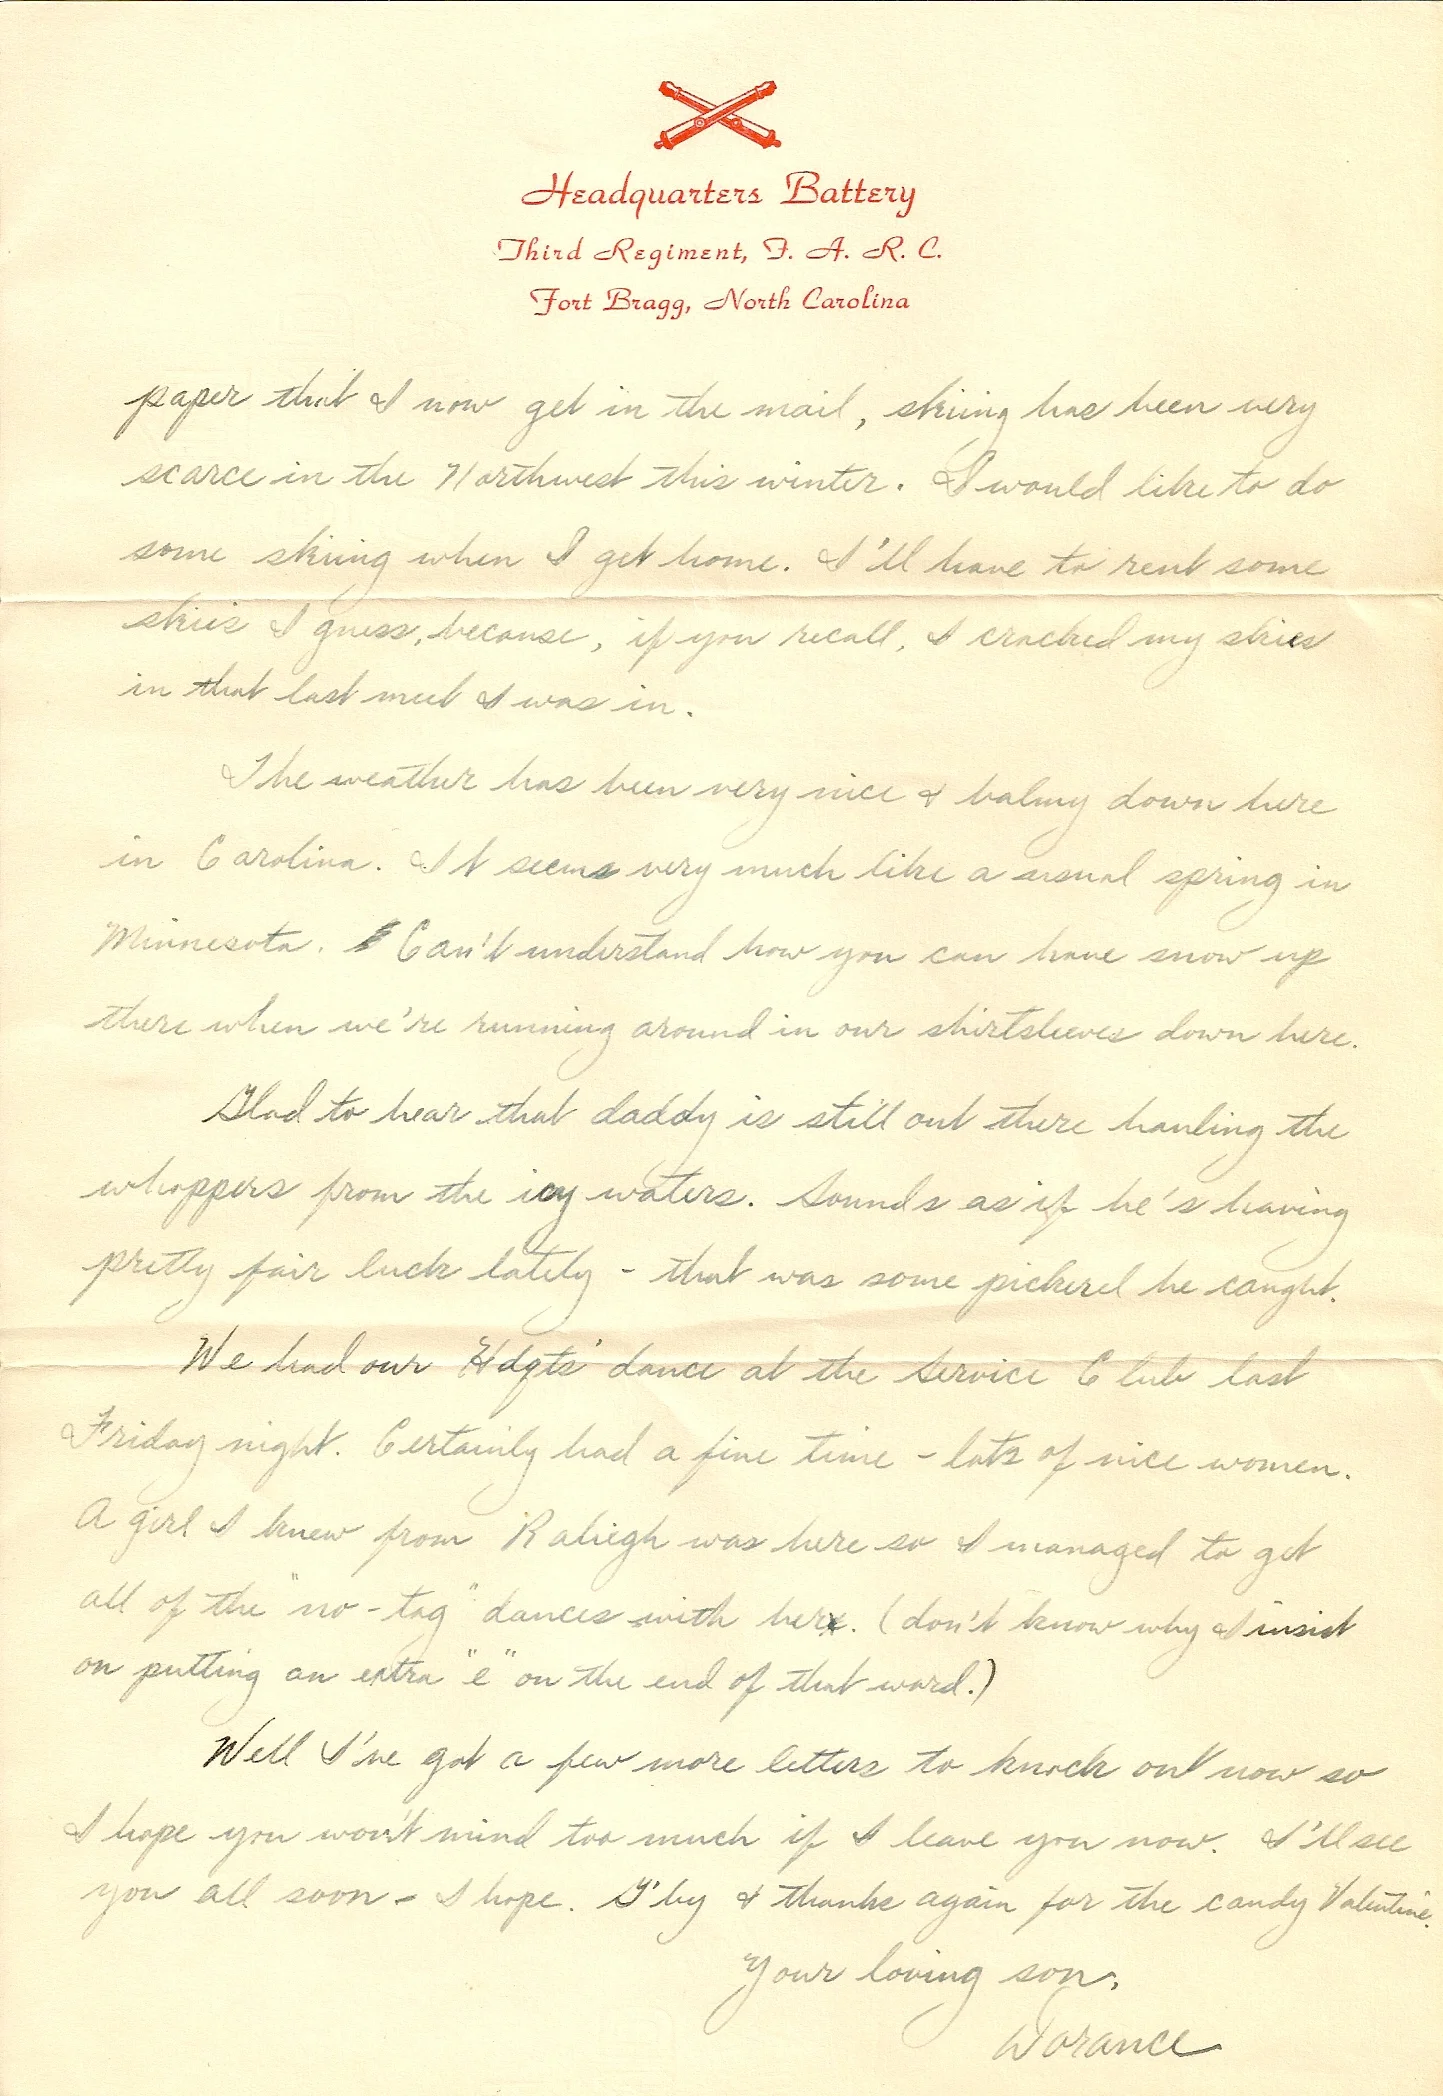 Headquarters Battery
Third Regiment, F. A. R. C.
Fort Bragg, North Carolina
paper that I now get in the mail, skiing has been very
scarce in the Northwest this winter. I would like to do
some skiing when I get home. I'll have to rent some
skiis I guess, because, if you recall, I cracked my skies
in that last meet I was in.
The weather has been very nice & balmy down here
in Carolina. It seems very much like a usual spring in
Minnesota. Can't understand how you can have snow up
there when we're running around in our shirtsleeves down here.
Glad to hear that daddy is still out there hauling the
whoppers from the icy waters. Sounds as if he's having
pretty fair luck lately - that was some pickerel he caught.
We had our Hdqts' dance at the Service Club last
Friday night. Certainly had a fine time - lots of nice women.
A girl I knew from Raliegh was here so I managed to get
all of the "no-tag" dances with her. (don't know why I insist
on putting an extra "e" on the end of that word.)
Well I've got a few more letters to knock out now so
I hope you won't mind too much if I leave you now. I'll see
you all soon - I hope. G'by & thanks again for the candy Valentine.
Your loving son,
Dorance